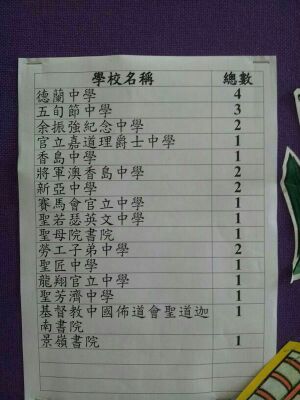 學校名稱 總數
德蘭中學 4
五旬節中學 3
余振強紀念中學 2
官立嘉道理爵士中學 1
香島中學 1
將軍澳香島中學 2
新亞中學 2
賽馬會官立中學 1
聖若瑟英文中學 1
聖母院書院 1
勞工子弟中學 2
聖匠中學 1
龍翔官立中學 1
聖芳濟中學 1
基督教中國佈道會聖道迦 1
南書院
景嶺書院 1